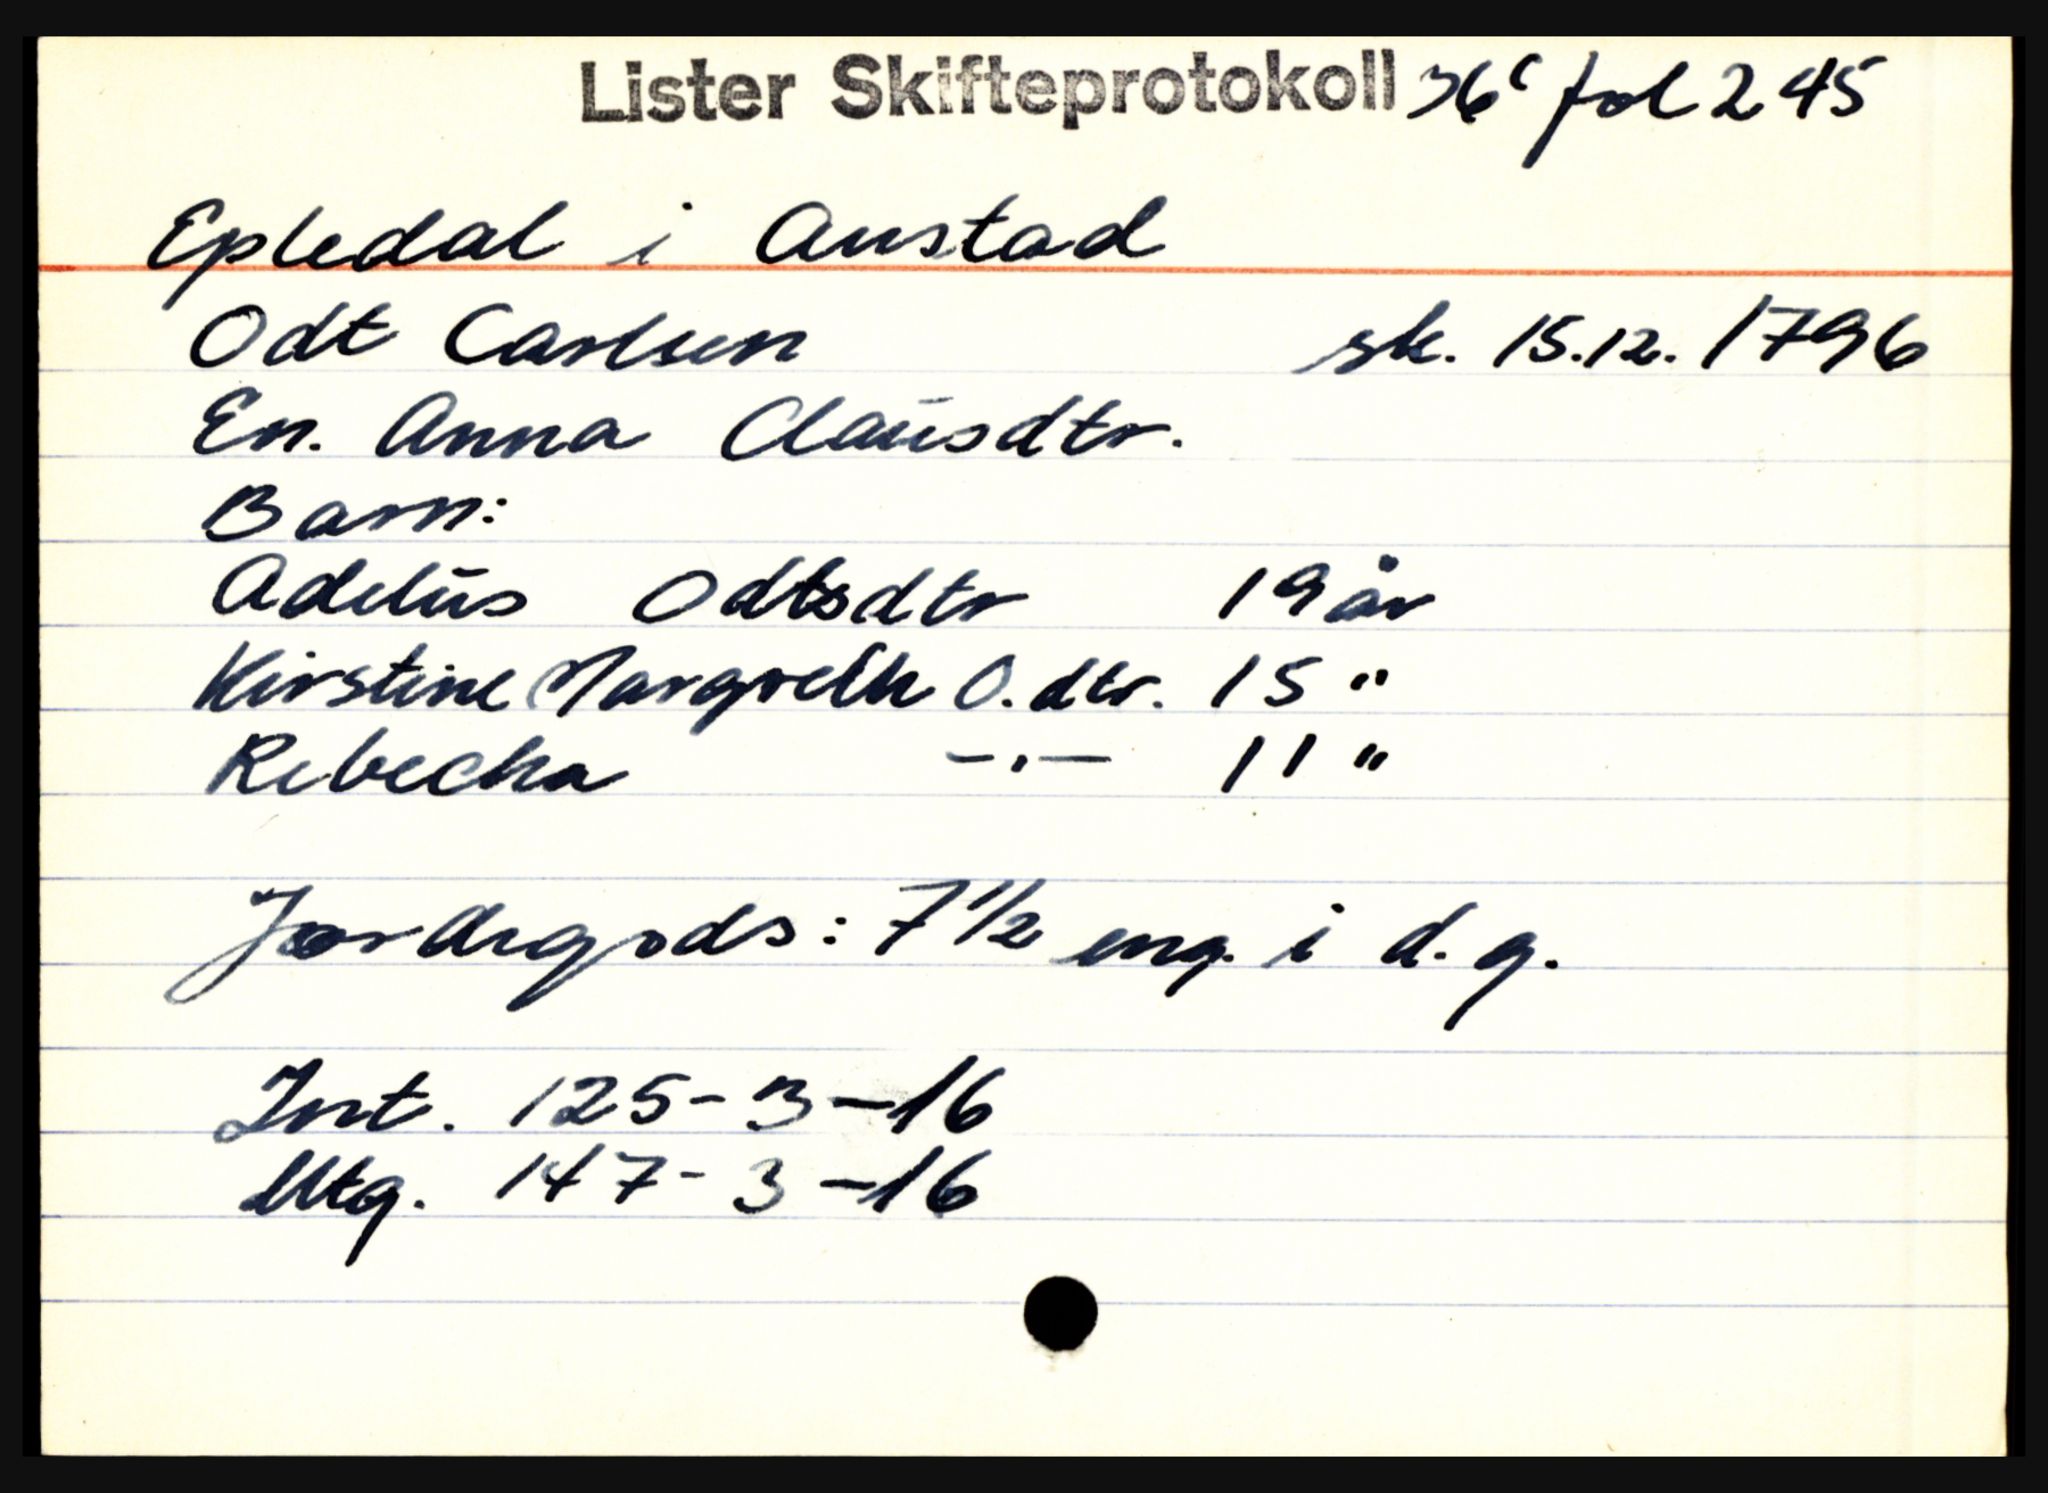 Lister Skifteprotokoll 36c fol 245
Epledal i Austad
Odt Carlsen sk. 15.12. 1796
En. Anna Clausdtr.
Barn:
Adelus Odtsdtr 19 år
Kirstine Margreth O.dtr. 15 "
Rebecha —"— 11 "
Jordegods: 7 1/2 eng. i d. g.
Int. 125 - 3 - 16
Utg. 147 - 3 - 16